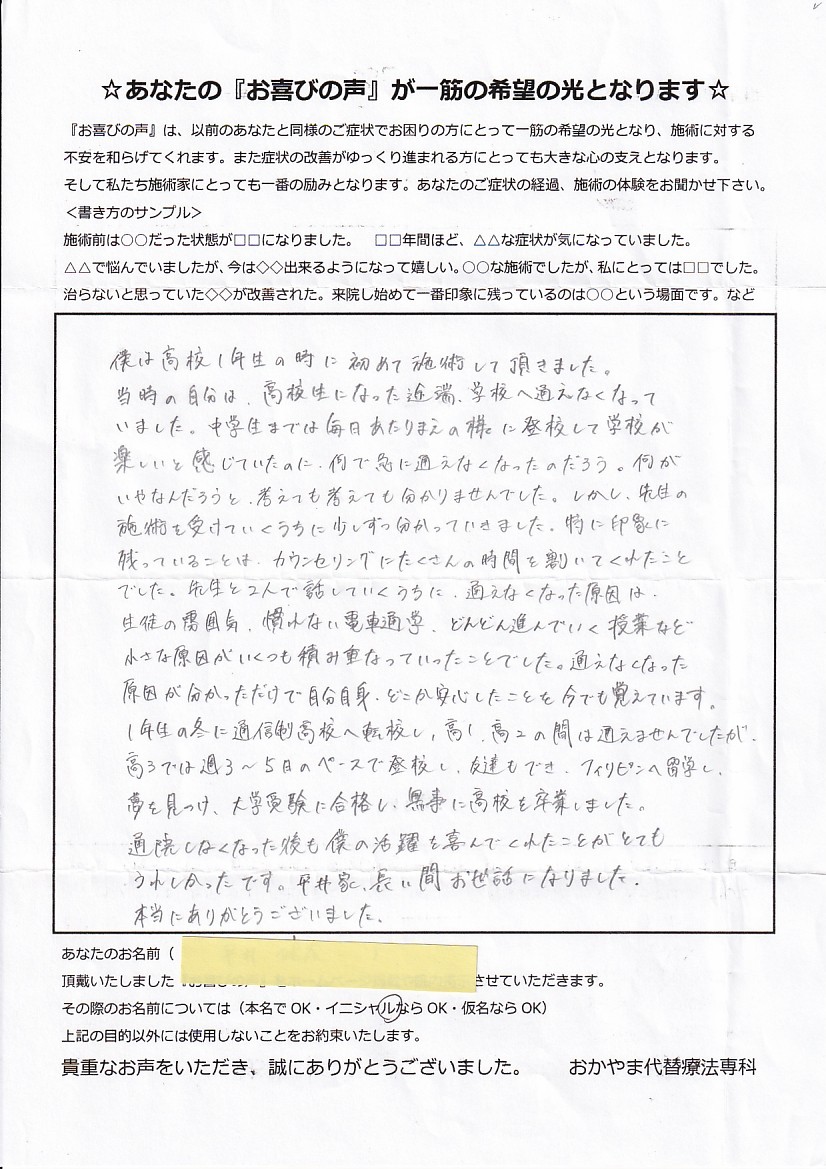 ☆あなたの『お喜びの声』が一筋の希望の光となります☆
『お喜びの声』は、以前のあなたと同様のご症状でお困りの方にとって一筋の希望の光となり、施術に対する
不安を和らげてくれます。また症状の改善がゆっくり進まれる方にとっても大きな心の支えとなります。
そして私たち施術家にとっても一番の励みとなります。あなたのご症状の経過、施術の体験をお聞かせ下さい。
＜書き方のサンプル＞
施術前は○○だった状態が□□になりました。 □□年間ほど、△△な症状が気になっていました。
△△で悩んでいましたが、今は◇◇出来るようになって嬉しい。○○な施術でしたが、私にとっては□□でした。
治らないと思っていた◇◇が改善された。来院し始めて一番印象に残っているのは○○という場面です。など
僕は高校1年生の時に初めて施術して頂きました。
当時の自分は、高校生になった途端、学校へ通えなくなって
いました。中学生までは毎日あたりまえの様に登校して学校が
楽しいと感じていたのに、何で急に通えなくなったのだろう。何が
いやなんだろうと、考えても考えても分かりませんでした。しかし、先生の
施術を受けていくうちに少しずつ分かっていきました。特に印象に
残っていることは、カウンセリングにたくさんの時間を割いてくれたこと
でした。先生と2人で話していくうちに、通えなくなった原因は、
生徒の雰囲気、慣れない電車通学、どんどん進んでいく授業など
小さな原因がいくつも積み重なっていったことでした。通えなくなった
原因が分かっただけで自分自身、どこか安心したことを今でも覚えています。
1年生の冬に通信制高校へ転校し、高1、高2の間は通えませんでしたが、
高3では週3～5日のペースで登校し、友達もでき、フィリピンへ留学し、
夢を見つけ、大学受験に合格し、無事に高校を卒業しました。
通院しなくなった後も僕の活躍を喜んでくれたことがとても
うれしかったです。平井家、長い間お世話になりました。
本当にありがとうございました。
あなたのお名前（
頂戴いたしました『お喜びの させていただきます。
その際のお名前については（本名で OK・イニシャルなら OK・仮名なら OK）
上記の目的以外には使用しないことをお約束いたします。
貴重なお声をいただき、誠にありがとうございました。 おかやま代替療法専科